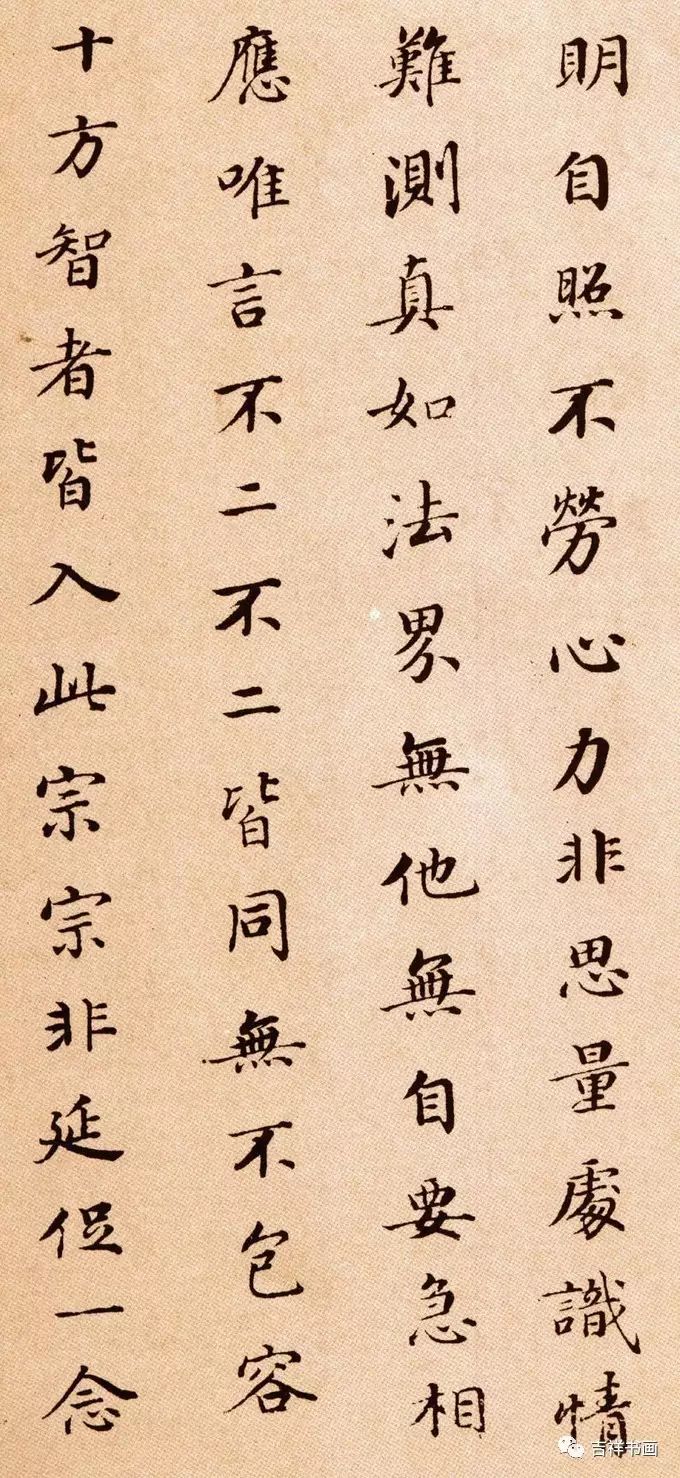 明自照不勞心力非思量處識情
難測真如法界無他無自要急相
應唯言不二不二皆同無不包容
十方智者皆入此宗宗非延促一念
吉祥书画